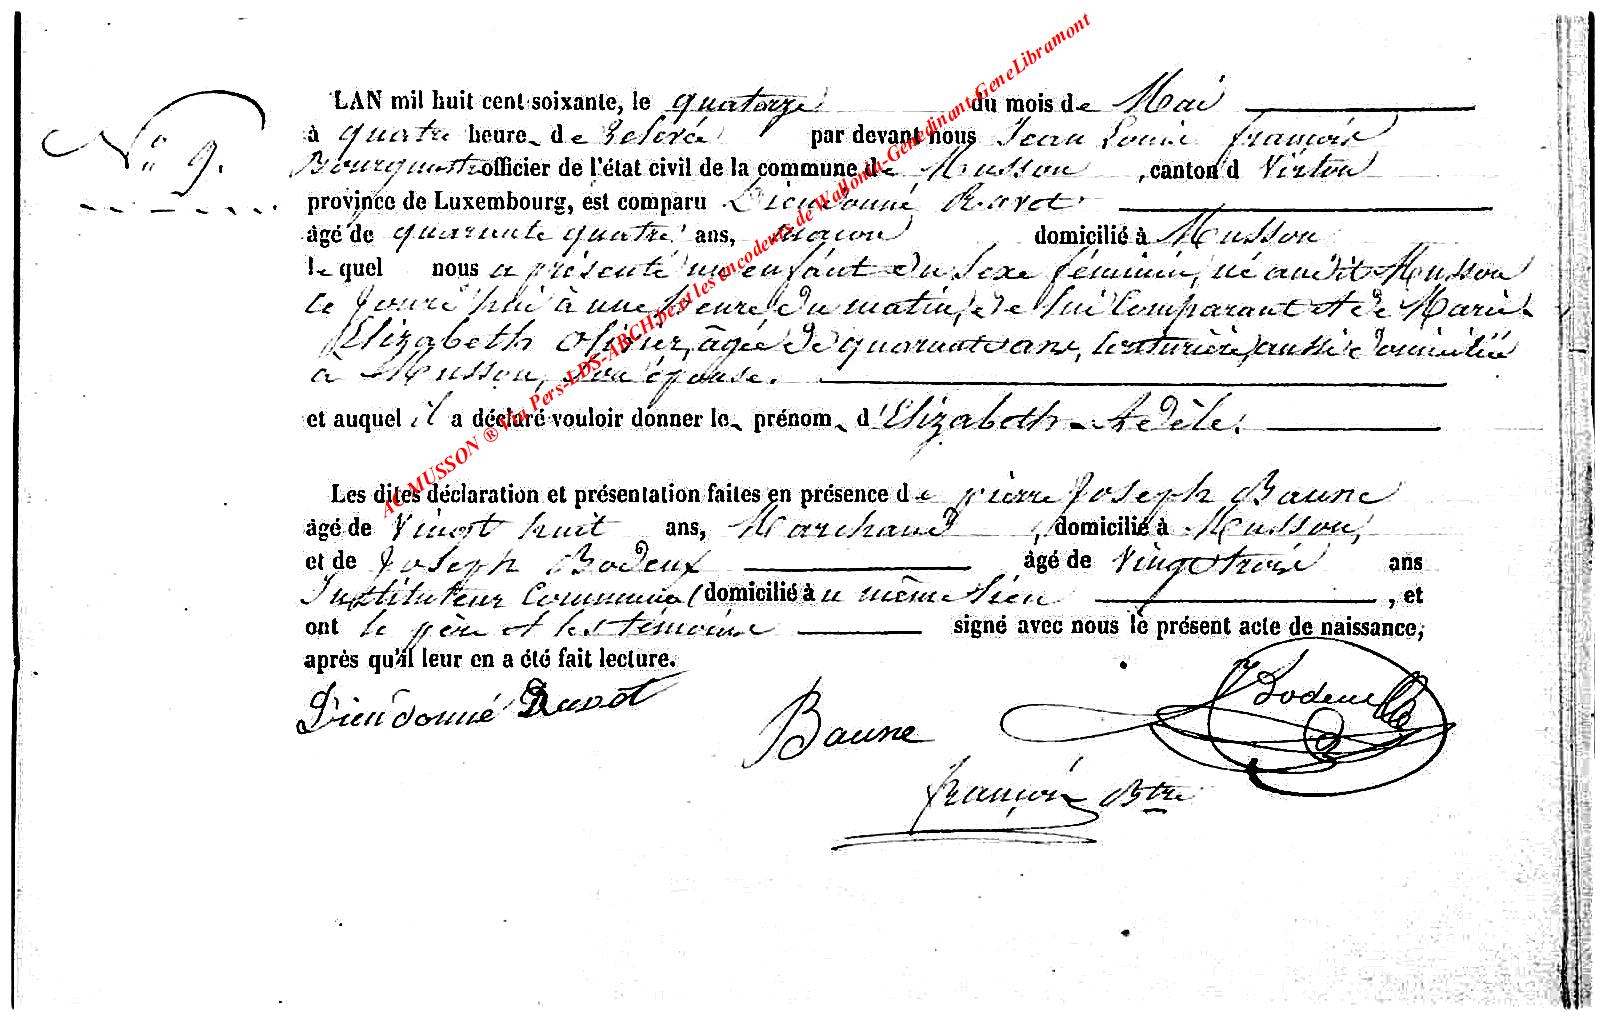 N° 9.
LAN mil huit cent soixante, le quatorze du mois de Mai
à quatre heure de Relevée par devant nous Jean Louis François
Bourguemestre officier de l'état civil de la commune de Musson, canton d Virton
province de Luxembourg, est comparu Dieudonné Ravot
âgé de quarante quatre ans, maçon domicilié à Musson
le quel nous a présenté un enfant du sexe féminin, né audit Musson
ce Jourd'hui à une heure du matin, de lui Comparant et de Marie
Elizabeth Olivier, âgée de quarante ans, Couturière, aussi domiciliée
à Musson, son épouse.
et auquel il a déclaré vouloir donner le prénom d'Elizabeth Adèle.
Les dites déclaration et présentation faites en présence de pierre Joseph Baune
âgé de Vingt huit ans, Marchand, domicilié à Musson,
et de Joseph Bodeux âgé de Vingt trois ans
Instituteur Communal domicilié au même lieu, et
ont le père et les témoins signé avec nous le présent acte de naissance,
après qu'il leur en a été fait lecture.
Dieudonné Ravot
Baune
J Bodeux
françois Btre
AC MUSSON ® Via Pers-LDS-ARCH.be et les encodeurs de Wallonia-Genedinant-GeneLibramont